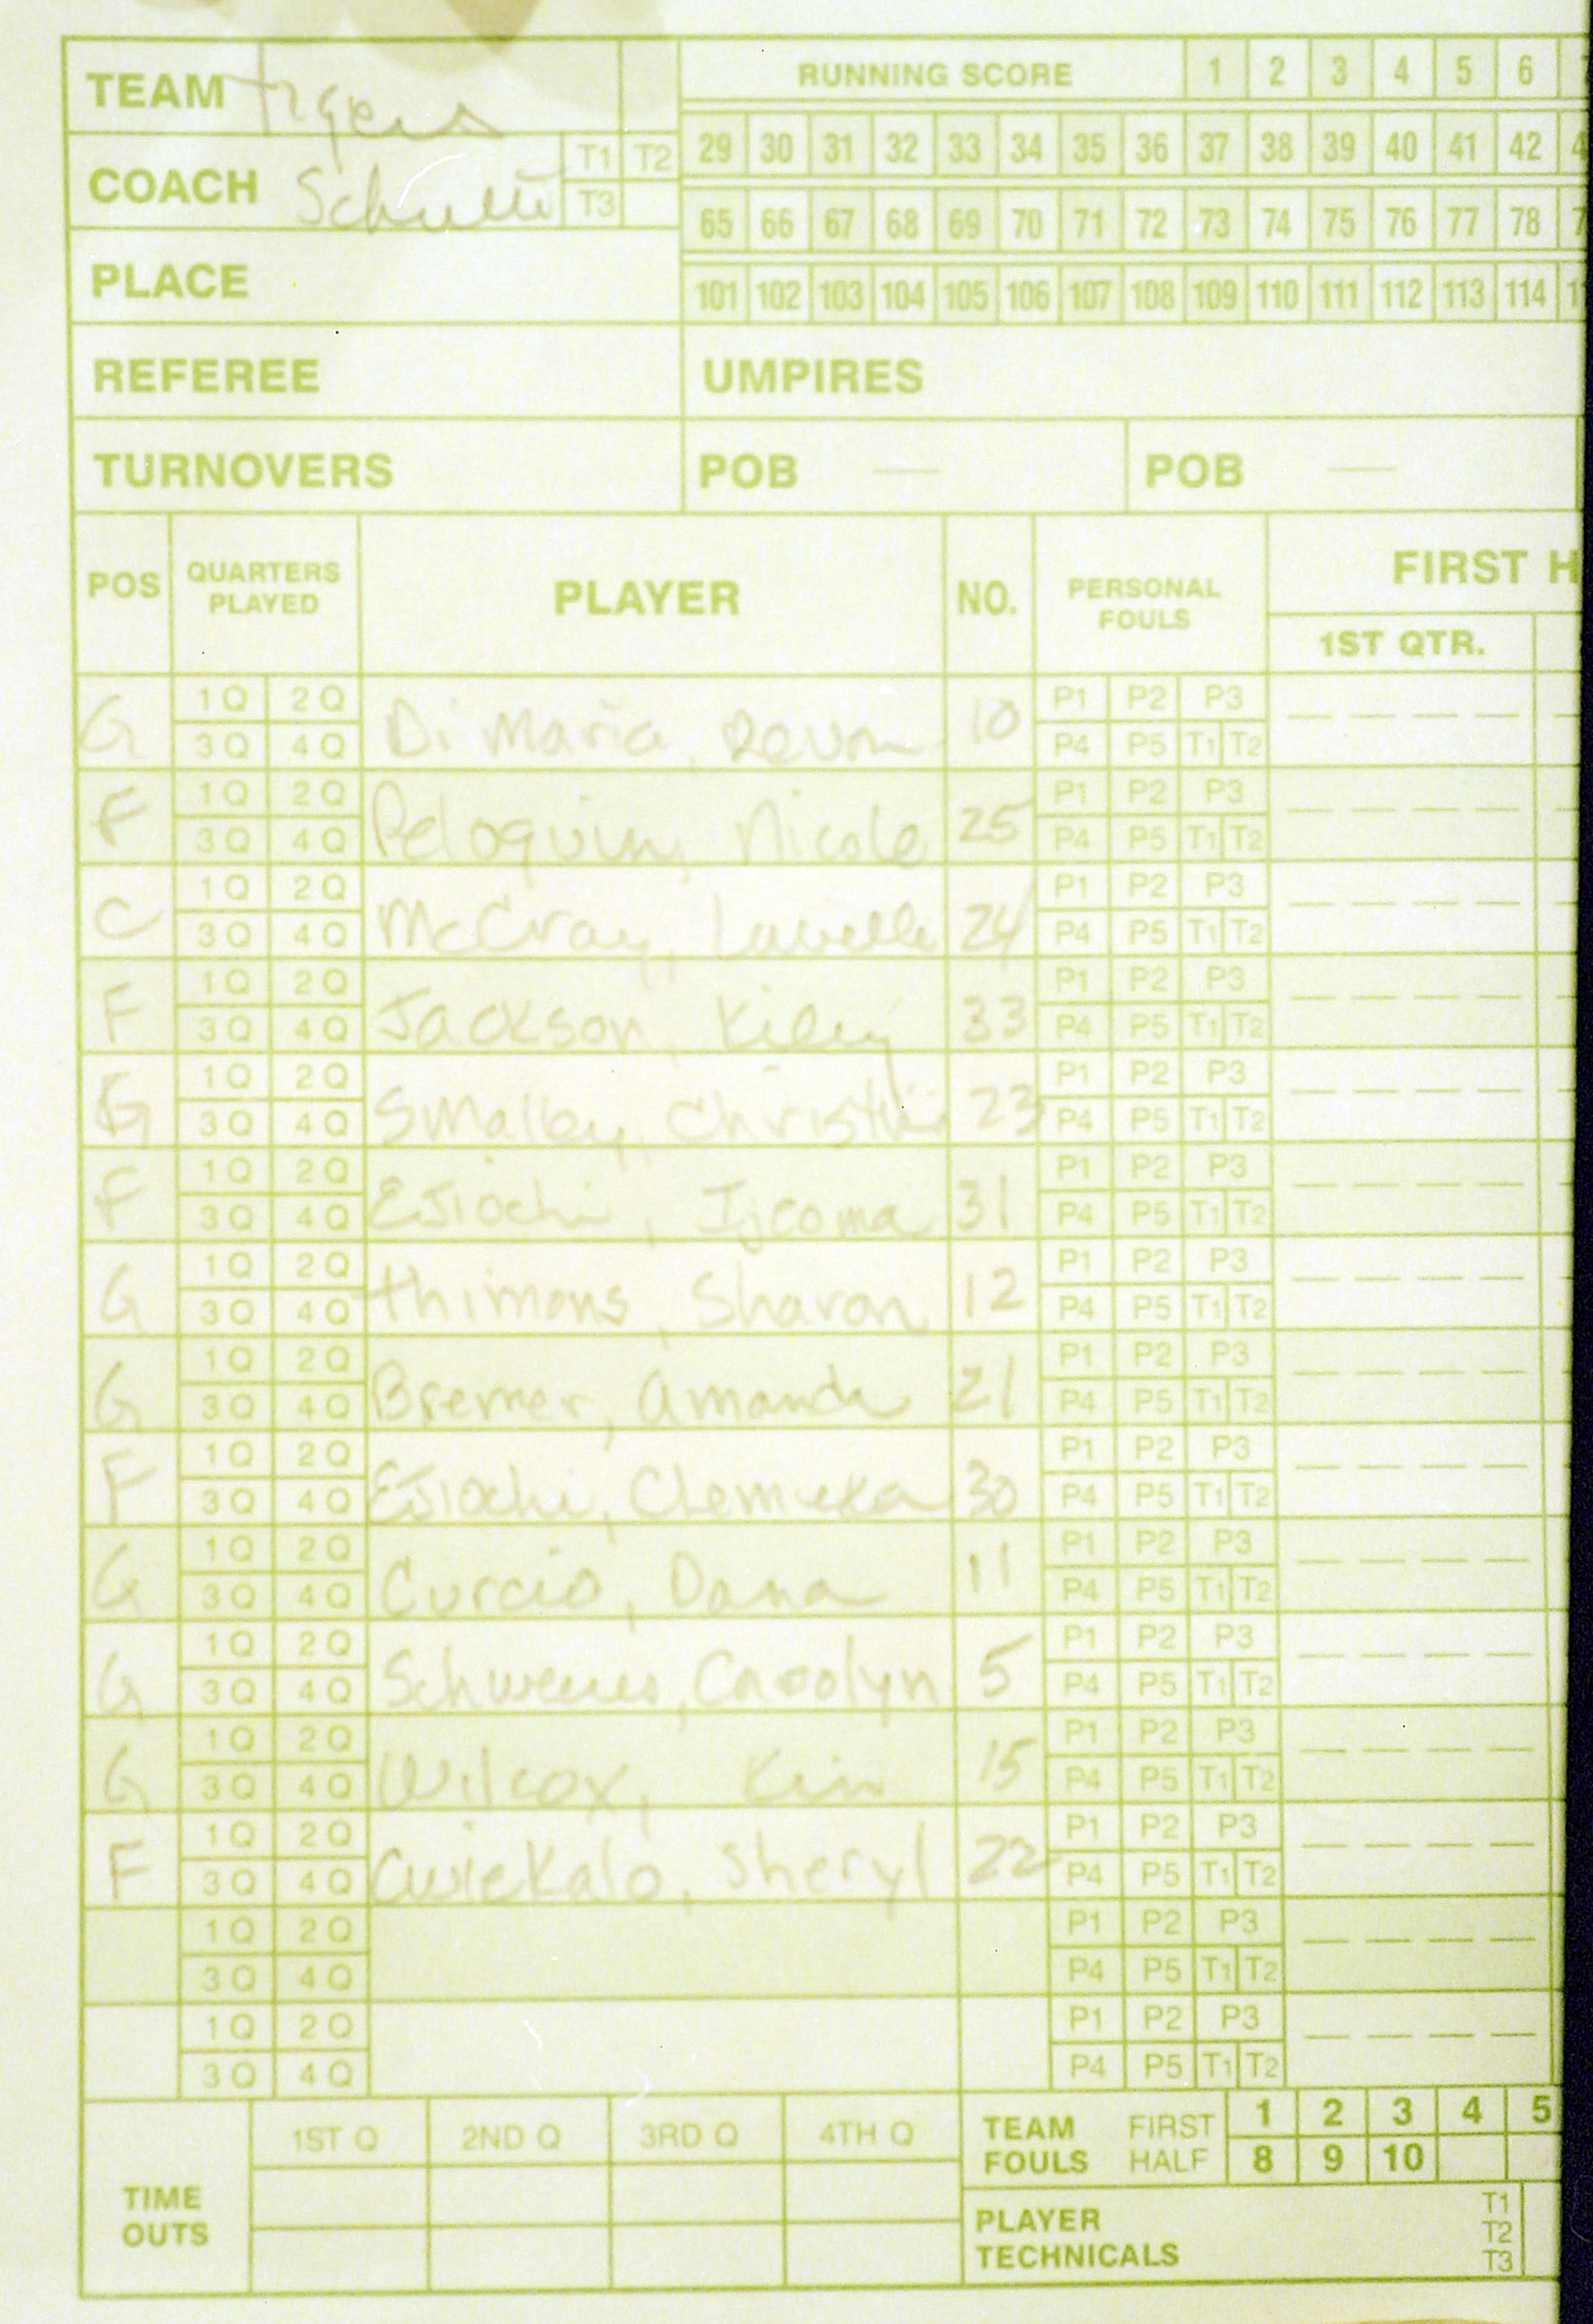 TEAM Tigers
RUNNING SCORE 1 2 3 4 5 6
COACH T1 T2
T3
29 30 31 32 33 34 35 36 37 38 39 40 41 42
65 66 67 68 69 70 71 72 73 74 75 76 77 78
PLACE
101 102 103 104 105 106 107 108 109 110 111 112 113 114
REFEREE UMPIRES
TURNOVERS POB — POB —
POS QUARTERS PLAYED PLAYER NO. PERSONAL FOULS FIRST H
1ST QTR.
G 1Q 2Q Di Maria, Devon 10 P1 P2 P3
3Q 4Q P4 P5 T1 T2
F 1Q 2Q Peloquin, Nicole 25 P1 P2 P3
3Q 4Q P4 P5 T1 T2
C 1Q 2Q McCray, 24 P1 P2 P3
3Q 4Q P4 P5 T1 T2
F 1Q 2Q Jackson, Kiley 33 P1 P2 P3
3Q 4Q P4 P5 T1 T2
G 1Q 2Q 23 P1 P2 P3
3Q 4Q P4 P5 T1 T2
F 1Q 2Q Ejiochi, Ijeoma 31 P1 P2 P3
3Q 4Q P4 P5 T1 T2
G 1Q 2Q Thimons, Sharon 12 P1 P2 P3
3Q 4Q P4 P5 T1 T2
G 1Q 2Q Bremer, Amanda 21 P1 P2 P3
3Q 4Q P4 P5 T1 T2
F 1Q 2Q Ejiochi, Chemeka 30 P1 P2 P3
3Q 4Q P4 P5 T1 T2
G 1Q 2Q Curcio, Dana 11 P1 P2 P3
3Q 4Q P4 P5 T1 T2
G 1Q 2Q Carolyn 5 P1 P2 P3
3Q 4Q P4 P5 T1 T2
G 1Q 2Q Wilcox, Kim 15 P1 P2 P3
3Q 4Q P4 P5 T1 T2
F 1Q 2Q Cwiekalo, Sheryl 22 P1 P2 P3
3Q 4Q P4 P5 T1 T2
1Q 2Q P1 P2 P3
3Q 4Q P4 P5 T1 T2
1Q 2Q P1 P2 P3
3Q 4Q P4 P5 T1 T2
TIME OUTS 1ST Q 2ND Q 3RD Q 4TH Q
TEAM FOULS FIRST HALF 1 2 3 4 5
8 9 10
PLAYER TECHNICALS T1
T2
T3